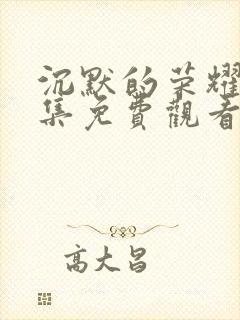 沉默的荣耀
集免費觀看
高大昌